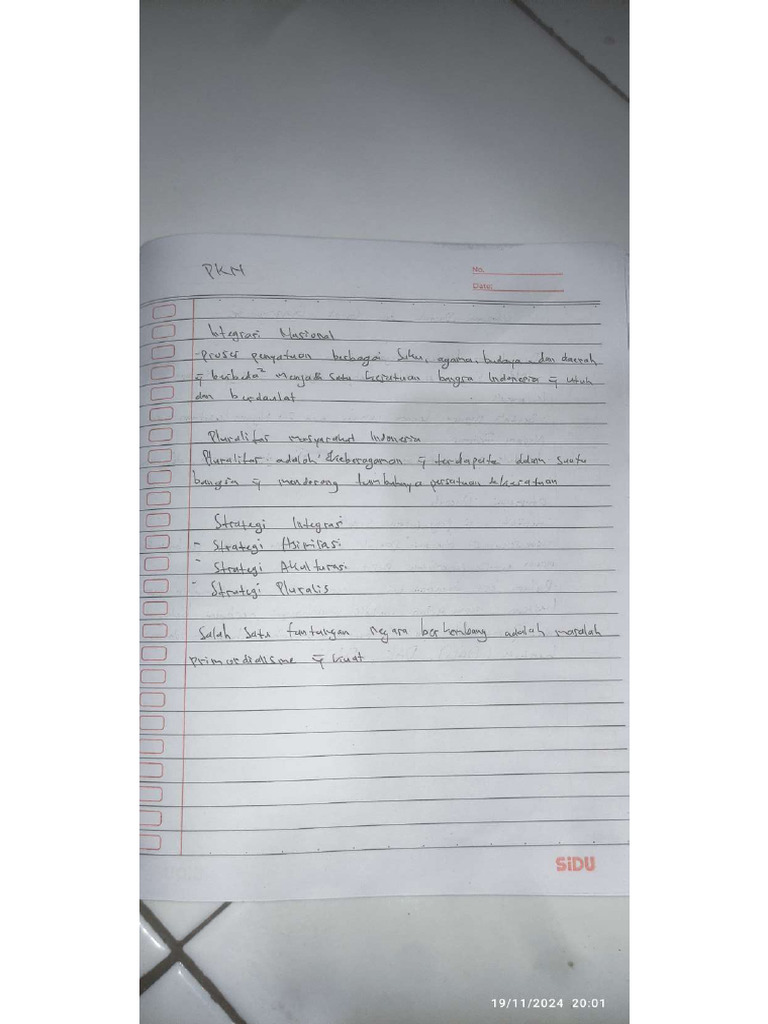 PKN
No.
Date:
Integrasi Nasional
- proses penyatuan berbagai suku, agama, budaya, dan daerah
yg berbeda² menjadi satu kesatuan bangsa Indonesia yg utuh
dan berdaulat
Pluralitas masyarakat Indonesia
Pluralitas adalah keberagaman yg terdapat dalam suatu
bangsa yg mendorong tumbuhnya persatuan & kesatuan
Strategi Integrasi
- Strategi Asimilasi
- Strategi Akulturasi
- Strategi Pluralis
Salah satu tantangan negara berkembang adalah masalah
primordialisme yg kuat
SiDU
19/11/2024 20:01